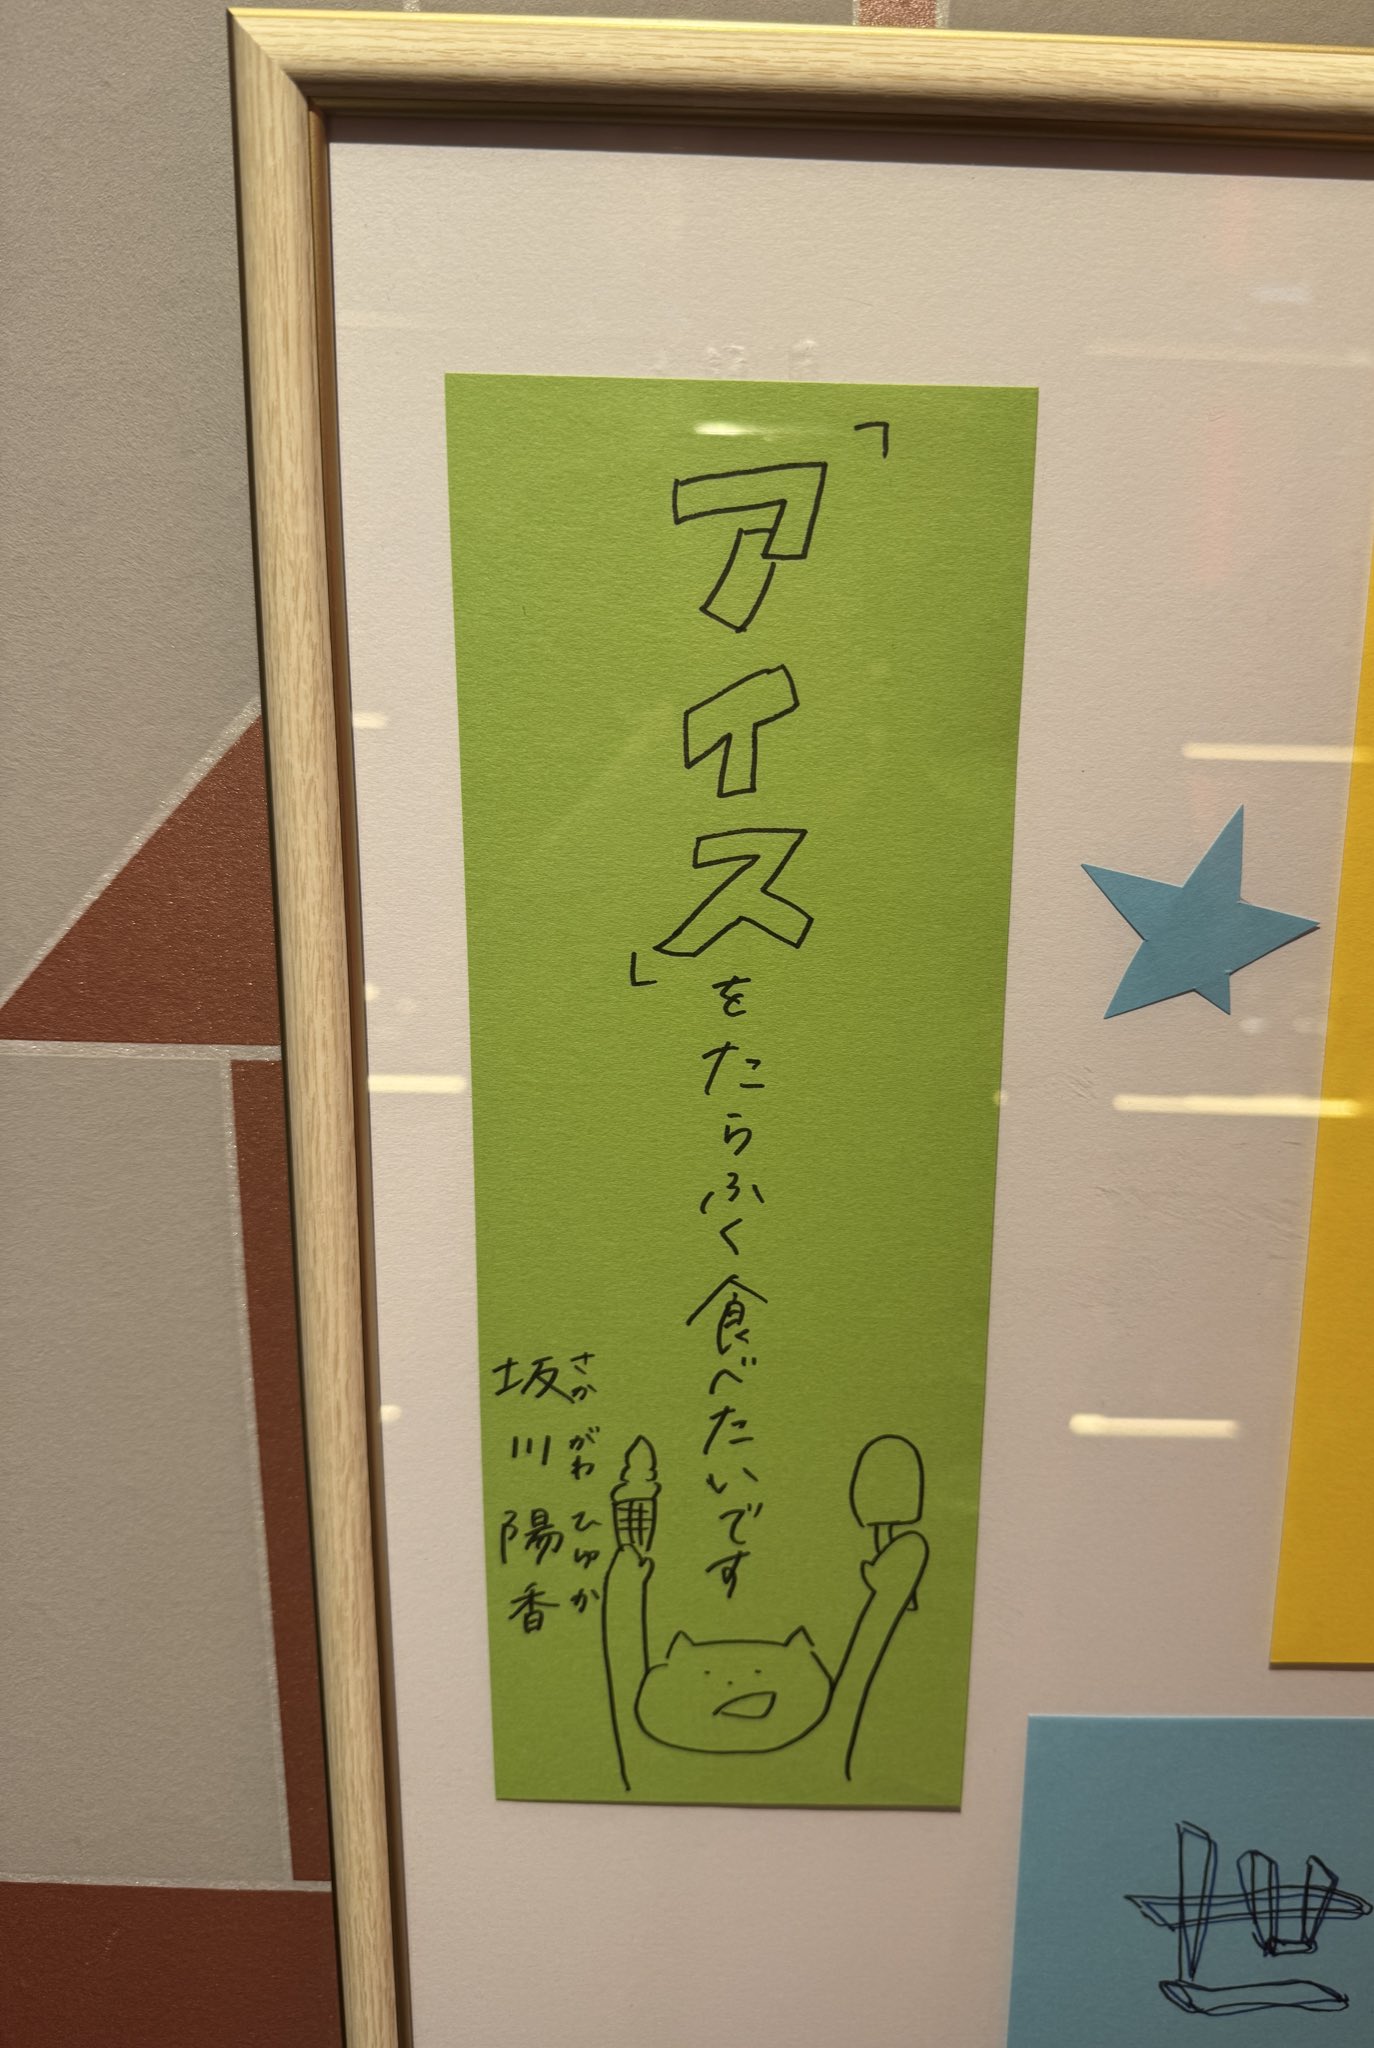 「アイス」をたらふく食べたいです
坂川陽香
さかがわひゅか
世